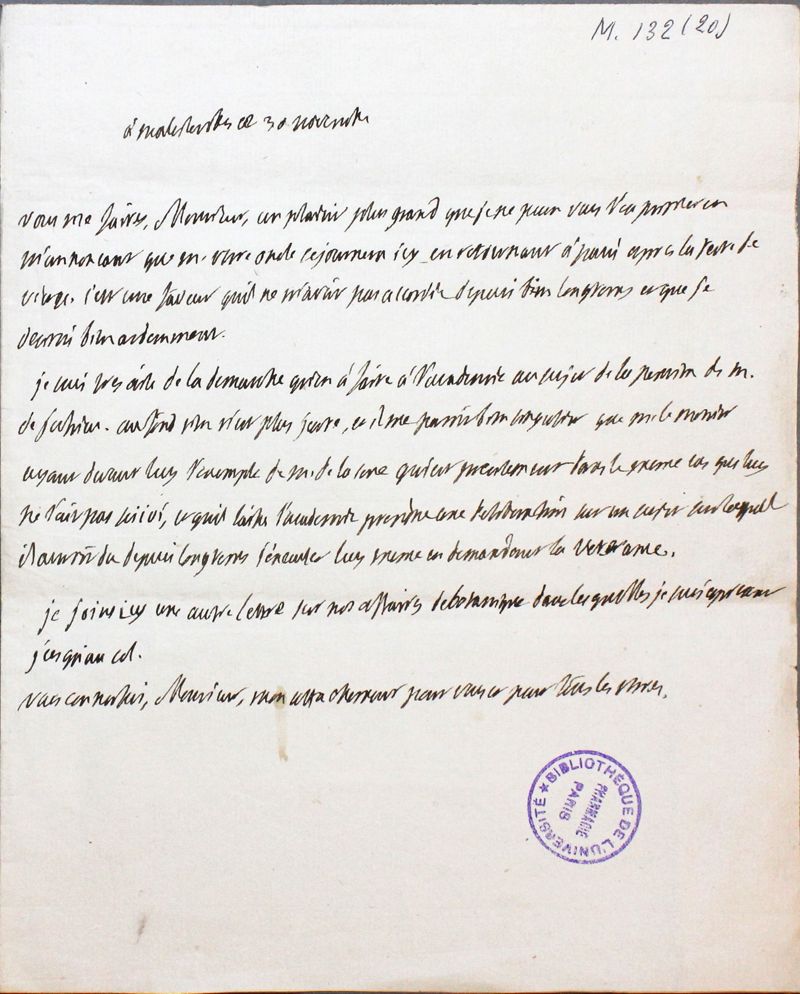 M. 132 (20)
à malesherbes ce 30 novembre
vous me faites, Monsieur, un plaisir plus grand que je ne puis vous l'exprimer en
m'annoncant que m. votre oncle sejournera icy en retournant à paris apres la feste de
c'est une faveur qu'il ne m'avoit pas accordée depuis bien longtems et que je
desirois bien ardemment.
je suis tres aise de la demarche qu'on a faite à l'academie au sujet de la pension de m.
de au fond rien n'est plus juste, et il me paroit bien singulier que m. le monier
ayant devant luy l'exemple de m. de la sone qui est precisement dans le meme cas que luy
ne l'ait pas suivi, et qu'il laisse l'academie prendre une deliberation sur un sujet sur lequel
il auroit du depuis longtems luy meme en demandant la veterance.
je joins icy une autre lettre sur nos affaires de botanique dans lesquelles je suis a present
jusqu'au col.
vous connoissés, Monsieur, mon attachement pour vous et pour tous les vostres.
BIBLIOTHÈQUE DE L'UNIVERSITÉ ★
PHARMACIE
PARIS